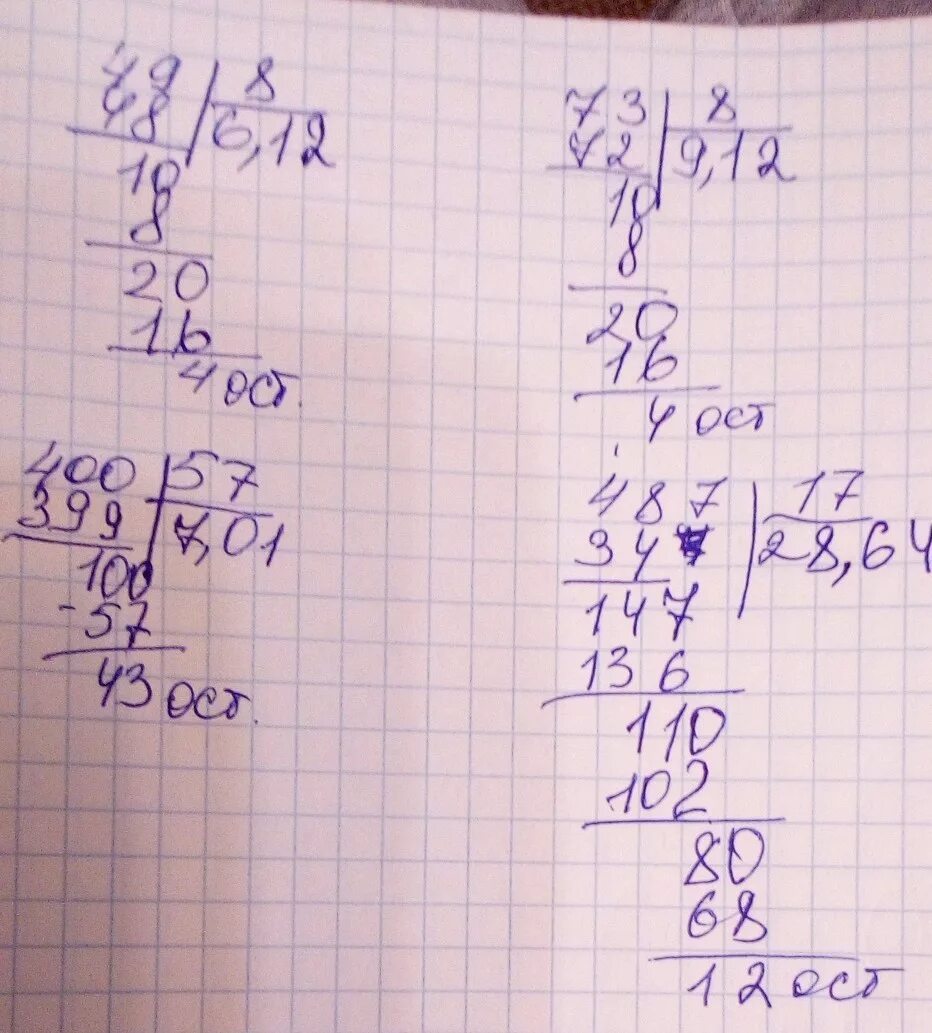 49 8
48 6,12
10
8
20
16
4 ост.
73 8
72 9,12
10
8
20
16
4 ост
400 57
399 7,01
100
-57
43 ост.
487 17
34 28,64
147
136
110
102
80
68
12 ост